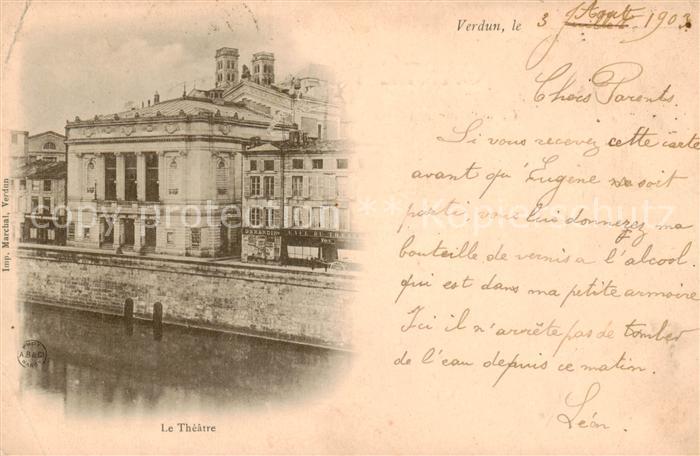 Verdun, le 3 Août 1903
Chers Parents
Si vous recevez cette carte
avant qu'Eugene ne soit
parti vous lui donnerez ma
bouteille de vernis a l'alcool.
qui est dans ma petite armoire
Ici il n'arrête pas de tomber
de l'eau depuis ce matin.
Léon
Imp. Marchal, Verdun
DURANDIN
CAFÉ DU
A.B.&C
Le Théâtre
copy protection **** searchkarten.xyz